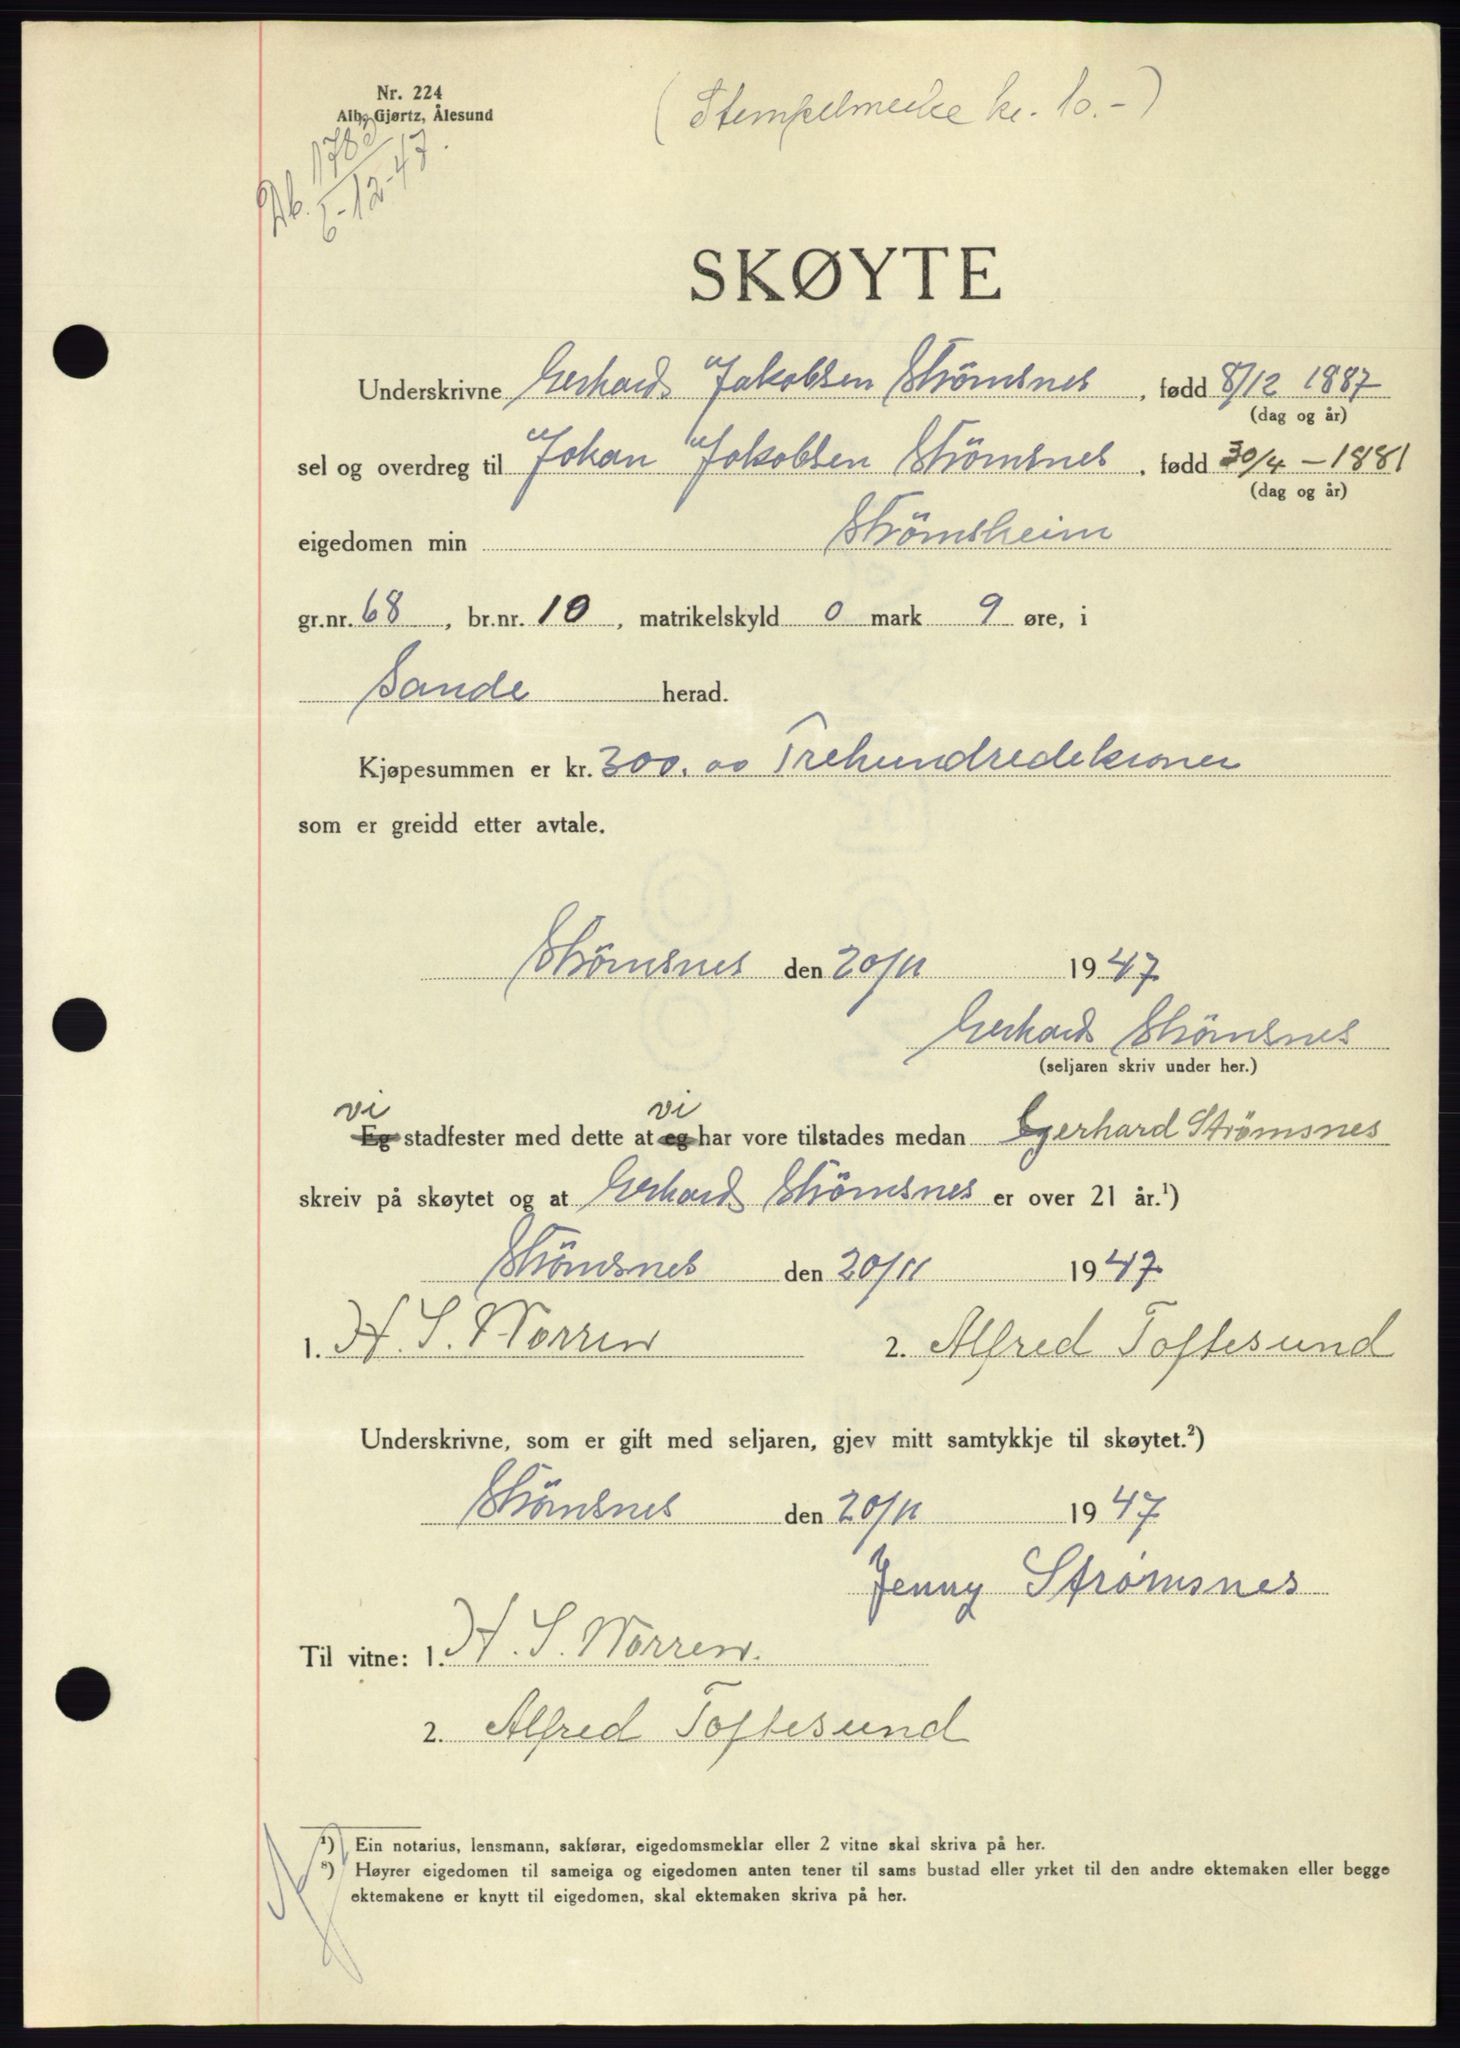 Nr. 224
Alb. Gjørtz, Ålesund
(Stempelmerke kr. 10.-)
Db. 1783
6-12-47.
SKØYTE
Underskrivne Gerhard Jakobsen Strömsnes, fødd 8/12 1887
(dag og år)
sel og overdreg til Johan Jakobsen Strömsnes, fødd 30/4 - 1881
(dag og år)
eigedomen min Strömsheim
gr.nr. 68, br.nr. 10, matrikelskyld 0 mark 9 øre, i
Sande herad.
Kjøpesummen er kr. 300.00 Trehundredekroner
som er greidd etter avtale.
Strömsnes den 20/11 1947
Gerhard Strömsnes
(seljaren skriv under her.)
vi vi
Eg stadfester med dette at eg har vore tilstades medan Gerhard Strømsnes
skreiv på skøytet og at Gerhard Strömsnes er over 21 år.¹)
Strömsnes den 20/11 1947
1. H. S. Worren 2. Alfred Toftesund
Underskrivne, som er gift med seljaren, gjev mitt samtykkje til skøytet.²)
Strömsnes den 20/11 1947
Jenny Strømsnes
Til vitne: 1. H. S. Worren.
2. Alfred Toftesund
¹) Ein notarius, lensmann, sakførar, eigedomsmeklar eller 2 vitne skal skriva på her.
²) Høyrer eigedomen til sameiga og eigedomen anten tener til sams bustad eller yrket til den andre ektemaken eller begge
ektemakene er knytt til eigedomen, skal ektemaken skriva på her.